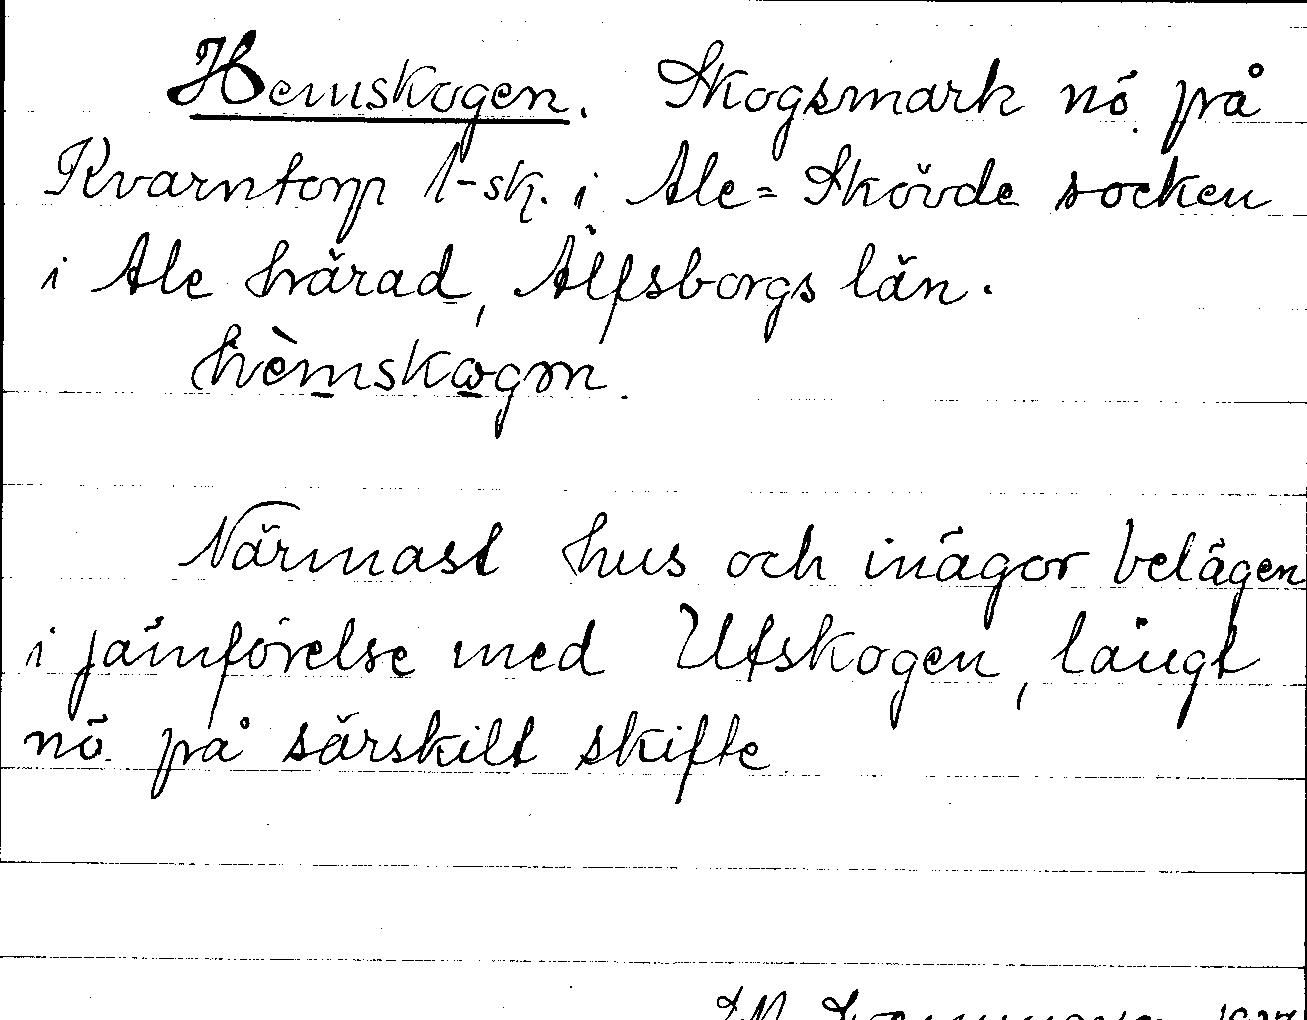 Hemskogen. Skogsmark nö. på
Kvarntorp 1-sk. i Ale-Skövde socken
i Ale härad, Älfsborgs län.
hèmskogen.
Närmast hus och inägor belägen
i jämförelse med Utskogen, längt
nö. på särskilt skifte